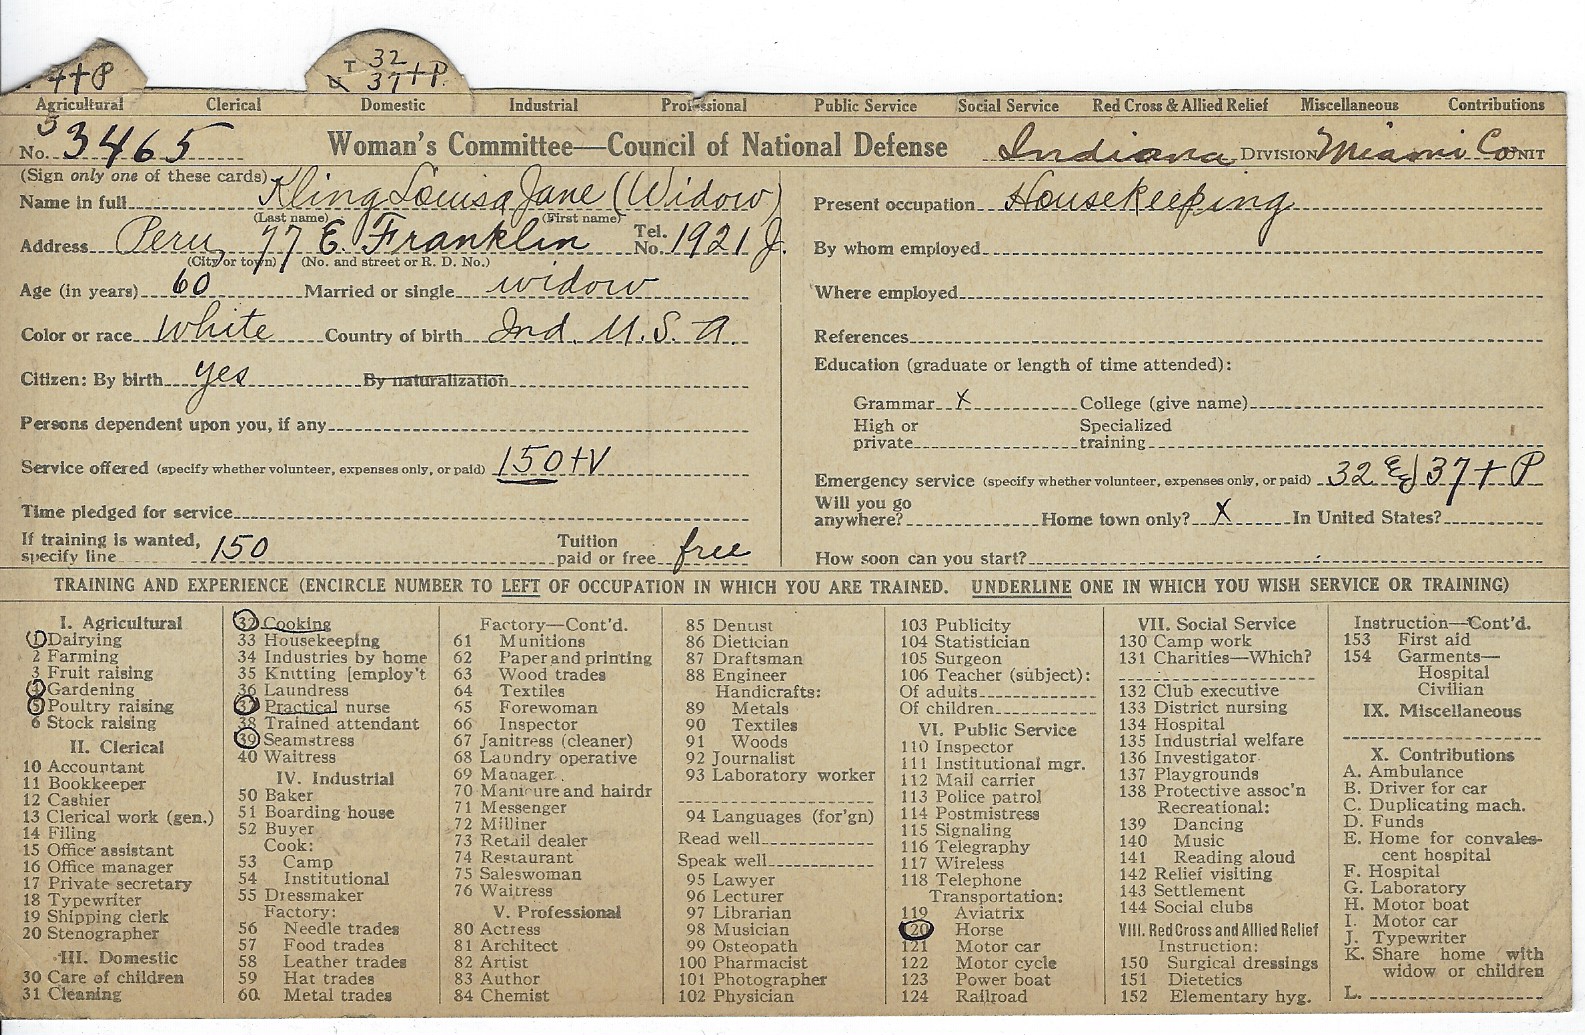 4+P
T 32
37+P.
Agricultural Clerical Domestic Industrial Professional Public Service Social Service Red Cross & Allied Relief Miscellaneous Contributions
No. 3465 Woman's Committee—Council of National Defense Indiana DIVISION Miami Co UNIT
(Sign only one of these cards)
Name in full Kling Louisa Jane (Widow)
(Last name) (First name)
Address Peru, 77 E. Franklin Tel. No. 1921 J.
(City or town) (No. and street or R. D. No.)
Age (in years) 60 Married or single widow
Color or race White Country of birth Ind. U.S.A.
Citizen: By birth yes By naturalization
Persons dependent upon you, if any
Service offered (specify whether volunteer, expenses only, or paid) 150+V
Time pledged for service
If training is wanted, specify line 150 Tuition paid or free free
Present occupation Housekeeping
By whom employed
Where employed
References
Education (graduate or length of time attended):
Grammar X College (give name)
High or private Specialized training
Emergency service (specify whether volunteer, expenses only, or paid) 32 & 37 + P
Will you go anywhere? Home town only? X In United States?
How soon can you start?
TRAINING AND EXPERIENCE (ENCIRCLE NUMBER TO LEFT OF OCCUPATION IN WHICH YOU ARE TRAINED. UNDERLINE ONE IN WHICH YOU WISH SERVICE OR TRAINING)
I. Agricultural
1 Dairying
2 Farming
3 Fruit raising
4 Gardening
5 Poultry raising
6 Stock raising
II. Clerical
10 Accountant
11 Bookkeeper
12 Cashier
13 Clerical work (gen.)
14 Filing
15 Office assistant
16 Office manager
17 Private secretary
18 Typewriter
19 Shipping clerk
20 Stenographer
III. Domestic
30 Care of children
31 Cleaning
32 Cooking
33 Housekeeping
34 Industries by home
35 Knitting [employ't
36 Laundress
37 Practical nurse
38 Trained attendant
39 Seamstress
40 Waitress
IV. Industrial
50 Baker
51 Boarding house
52 Buyer
Cook:
53 Camp
54 Institutional
55 Dressmaker
Factory:
56 Needle trades
57 Food trades
58 Leather trades
59 Hat trades
60. Metal trades
Factory—Cont'd.
61 Munitions
62 Paper and printing
63 Wood trades
64 Textiles
65 Forewoman
66 Inspector
67 Janitress (cleaner)
68 Laundry operative
69 Manager
70 Manicure and hairdr
71 Messenger
72 Milliner
73 Retail dealer
74 Restaurant
75 Saleswoman
76 Waitress
V. Professional
80 Actress
81 Architect
82 Artist
83 Author
84 Chemist
85 Dentist
86 Dietician
87 Draftsman
88 Engineer
Handicrafts:
89 Metals
90 Textiles
91 Woods
92 Journalist
93 Laboratory worker
94 Languages (for'gn)
Read well
Speak well
95 Lawyer
96 Lecturer
97 Librarian
98 Musician
99 Osteopath
100 Pharmacist
101 Photographer
102 Physician
103 Publicity
104 Statistician
105 Surgeon
106 Teacher (subject):
Of adults
Of children
VI. Public Service
110 Inspector
111 Institutional mgr.
112 Mail carrier
113 Police patrol
114 Postmistress
115 Signaling
116 Telegraphy
117 Wireless
118 Telephone
Transportation:
119 Aviatrix
120 Horse
121 Motor car
122 Motor cycle
123 Power boat
124 Railroad
VII. Social Service
130 Camp work
131 Charities—Which?
132 Club executive
133 District nursing
134 Hospital
135 Industrial welfare
136 Investigator
137 Playgrounds
138 Protective assoc'n
Recreational:
139 Dancing
140 Music
141 Reading aloud
142 Relief visiting
143 Settlement
144 Social clubs
VIII. Red Cross and Allied Relief
Instruction:
150 Surgical dressings
151 Dietetics
152 Elementary hyg.
Instruction—Cont'd.
153 First aid
154 Garments—
Hospital
Civilian
IX. Miscellaneous
X. Contributions
A. Ambulance
B. Driver for car
C. Duplicating mach.
D. Funds
E. Home for convales-
cent hospital
F. Hospital
G. Laboratory
H. Motor boat
I. Motor car
J. Typewriter
K. Share home with
widow or children
L.